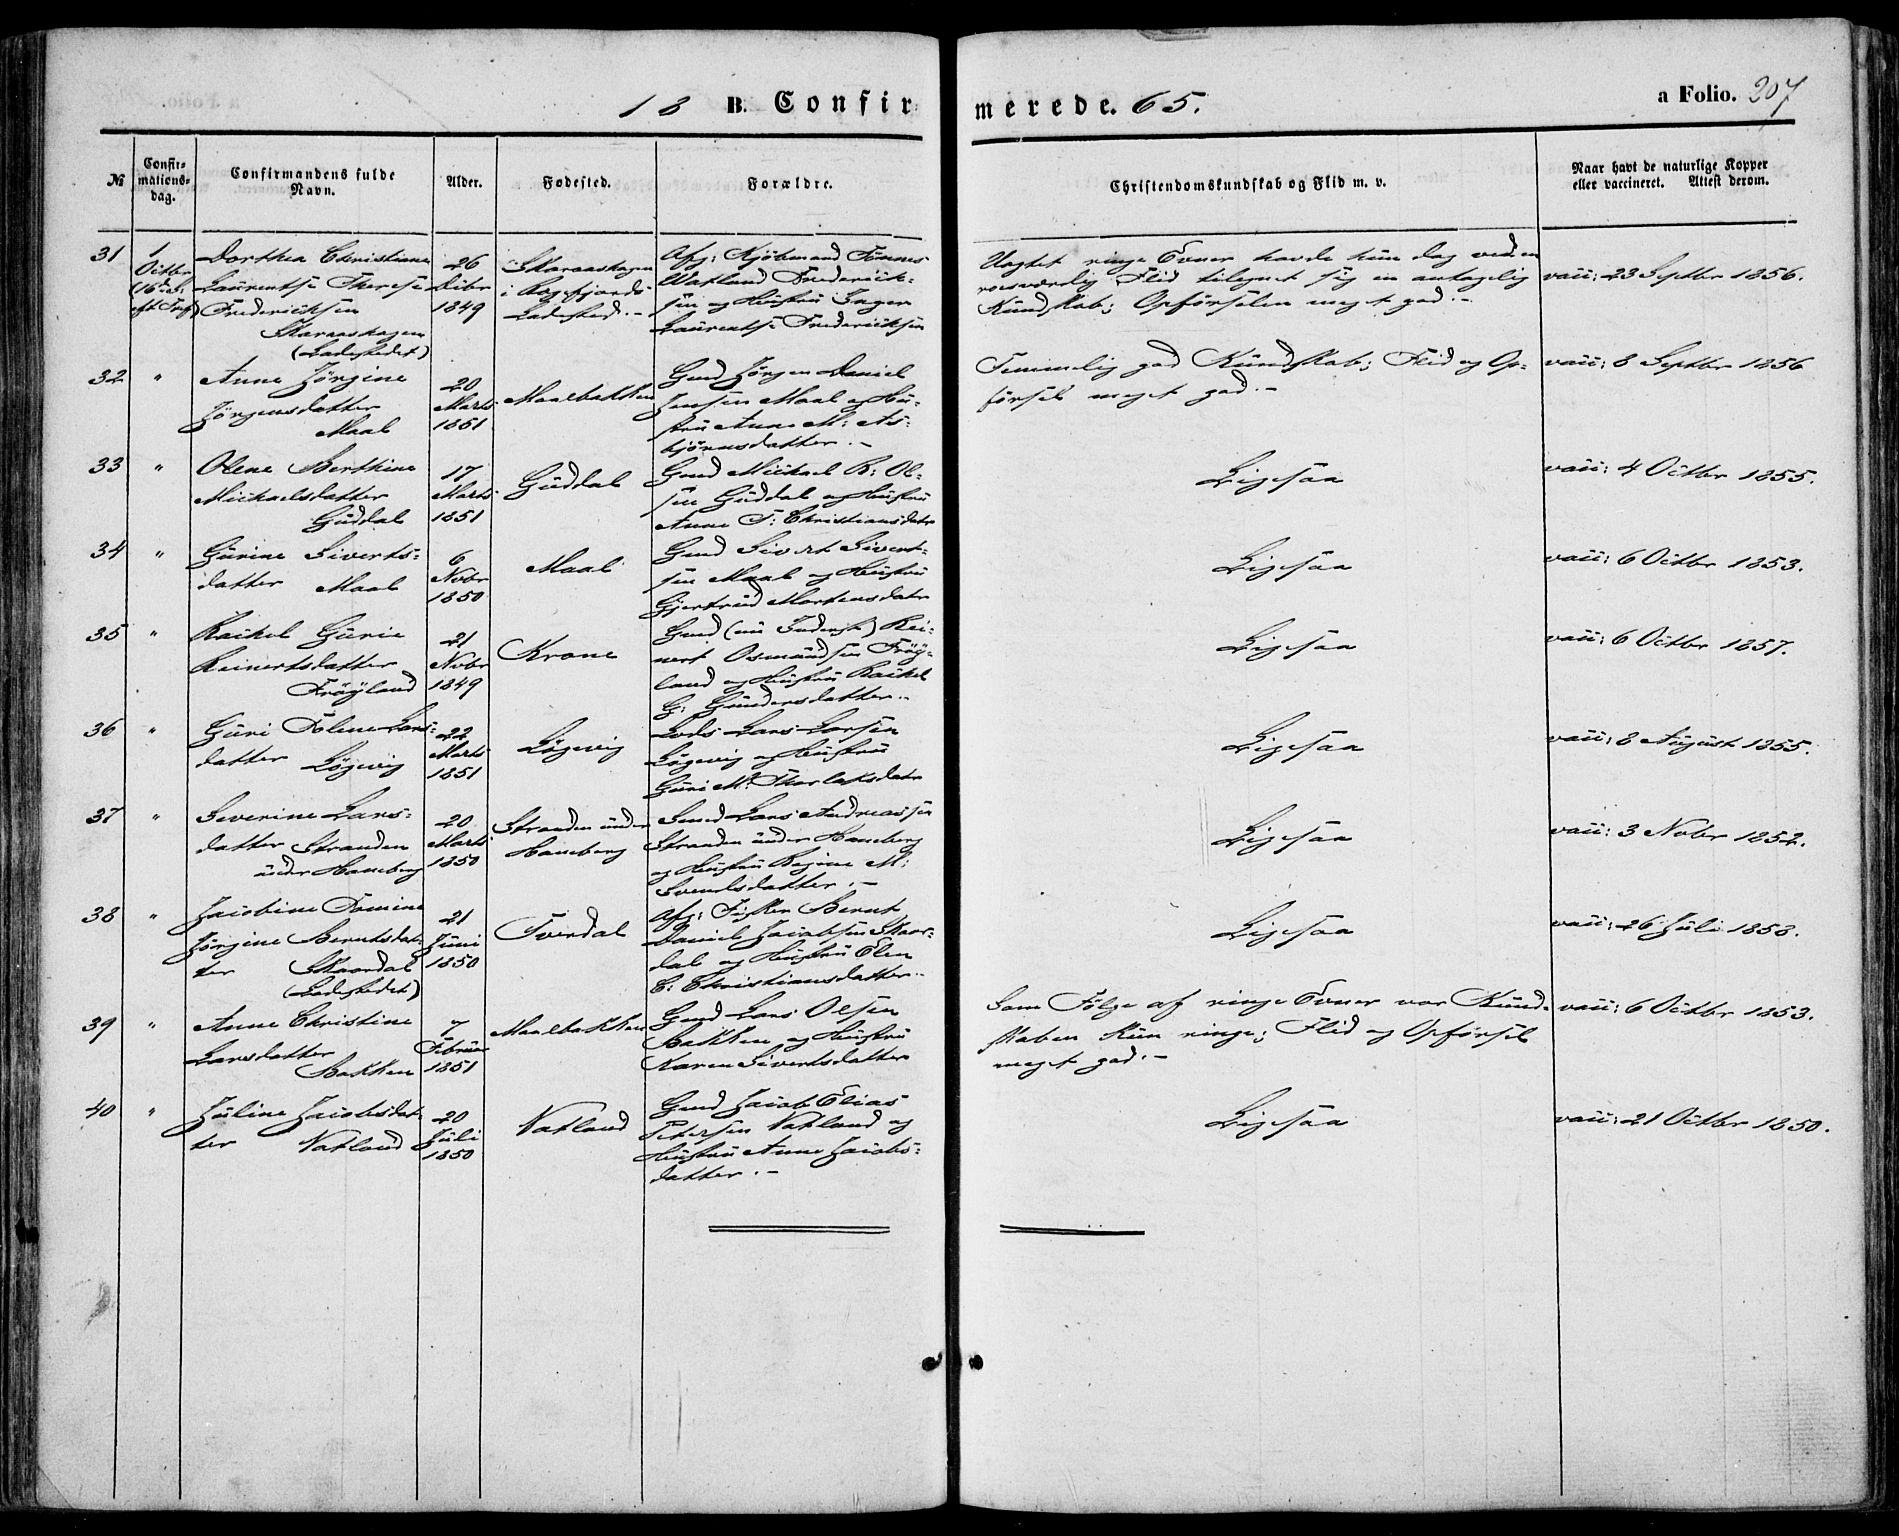 18 B. Confirmerede. 65.
a Folio. 207
№
Confirmationsdag.
Confirmandens fulde Navn.
Alder.
Fødested.
Forældre.
Christendomskundskab og Flid m. v.
Naar havt de naturlige Kopper eller vaccineret. Attest derom.
31
1 Octbr
(16 e
Dorthea Christiane
Laurentse Therese
Fredericksen
(Ladestedet)
26
Dcbr
1849
i Rægefjords
Ladested.-
Afg: Kjøbmand Tønnes
Watland Frederick-
sen og Hustru Inger
Laurentse Fredericksen
Uagtet ringe Evner havde hun dog ved en
roesværdig Flid tilegnet sig en antagelig
Kundskab; Opførselen meget god.-
vacc: 23 Septbr 1856.
32
"
Anne Jørgine
Jørgensdatter
Maal
20
Marts
1851
Maalbakken
Gmd Jørgen Daniel
Jensen Maal og Hu-
stru Anne M: As-
bjørnsdatter.-
Temmelig god Kundskab; Flid og Op-
førsel meget god.-
vacc: 8 Septbr 1856
33
"
Olene Berthine
Michaelsdatter
Guddal
17
Marts
1851
Guddal
Gmd Michael B: Ol-
sen Guddal og Hustru
Anne T: Christiansdatr
Ligesaa
vacc: 4 Octbr 1855.
34
"
Gurine Siverts-
datter Maal
6
Novbr
1850
Maal
Gmd Sivert Sivert-
sen Maal og Hustru
Gjertrud Mortensdatr
Ligesaa
vacc: 6 Octbr 1853.
35
"
Rachel Gurie
Reinertsdatter
Frøyland
21
Novbr
1849
Krone
Gmd (nu Inderst) Rei-
nert Osmundsen Frøy-
land og Hustru Rachel
G: Gundersdatter.-
Ligesaa
vacc: 6 Octbr 1857.
36
"
Guri Tolene Lars-
datter Løgevig
22
Marts
1851
Løgevig
Lods Lars Larsen
Løgevig og Hustru
Guri M. Thorlaksdatr
Ligesaa
vacc: 8 August 1855.
37
"
Severine Lars-
datter Stranden
under Haneberg
20
Marts
1850
Stranden under
Haneberg
Smed Lars Andreassen
Stranden under Haneberg
og Hustru Regine M:
Svendsdatter.-
Ligesaa
vacc: 3 Novbr 1852.
38
"
Jacobine Tomine
Jørgine Berntsdat-
ter Skaardal
(Ladestedet)
21
Juni
1850
Tverdal
Afg: Fisker Bernt
Daniel Jacobsen Skaar-
dal og Hustru Elen
C: Christiansdatter.-
Ligesaa
vacc: 26 Juli 1858.
39
"
Anne Christine
Larsdatter
Bakken
7
Februar
1851
Maalbakken
Gmd Lars Olsen
Bakken og Hustru
Karen Sivertsdatter
Som Følge af ringe Evner var Kund-
skaben kun ringe; Flid og Opførsel
meget god.-
vacc: 6 Octbr 1853.
40
"
Juline Jacobsdat-
ter Natland
20
Juli
1850
Natland
Gmd Jacob Elias
Petersen Natland og
Hustru Anne Jacobs-
datter.-
Ligesaa
vacc: 21 Octbr 1850.